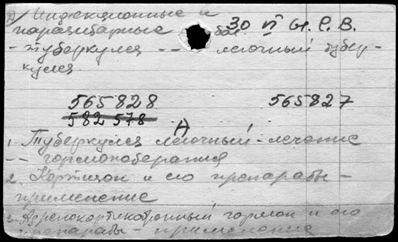 А) Инфекционные и
паразитарные бол. 30 п Н.С.В.
- туберкулез -- легочный тубер-
кулез.
565828 565827
582 578
А
1. Туберкулез легочный - лечение
-- гормонотерапия
2. Кортизон и его препараты -
применение
3. Адренокортикотропный гормон и его
препараты - применение